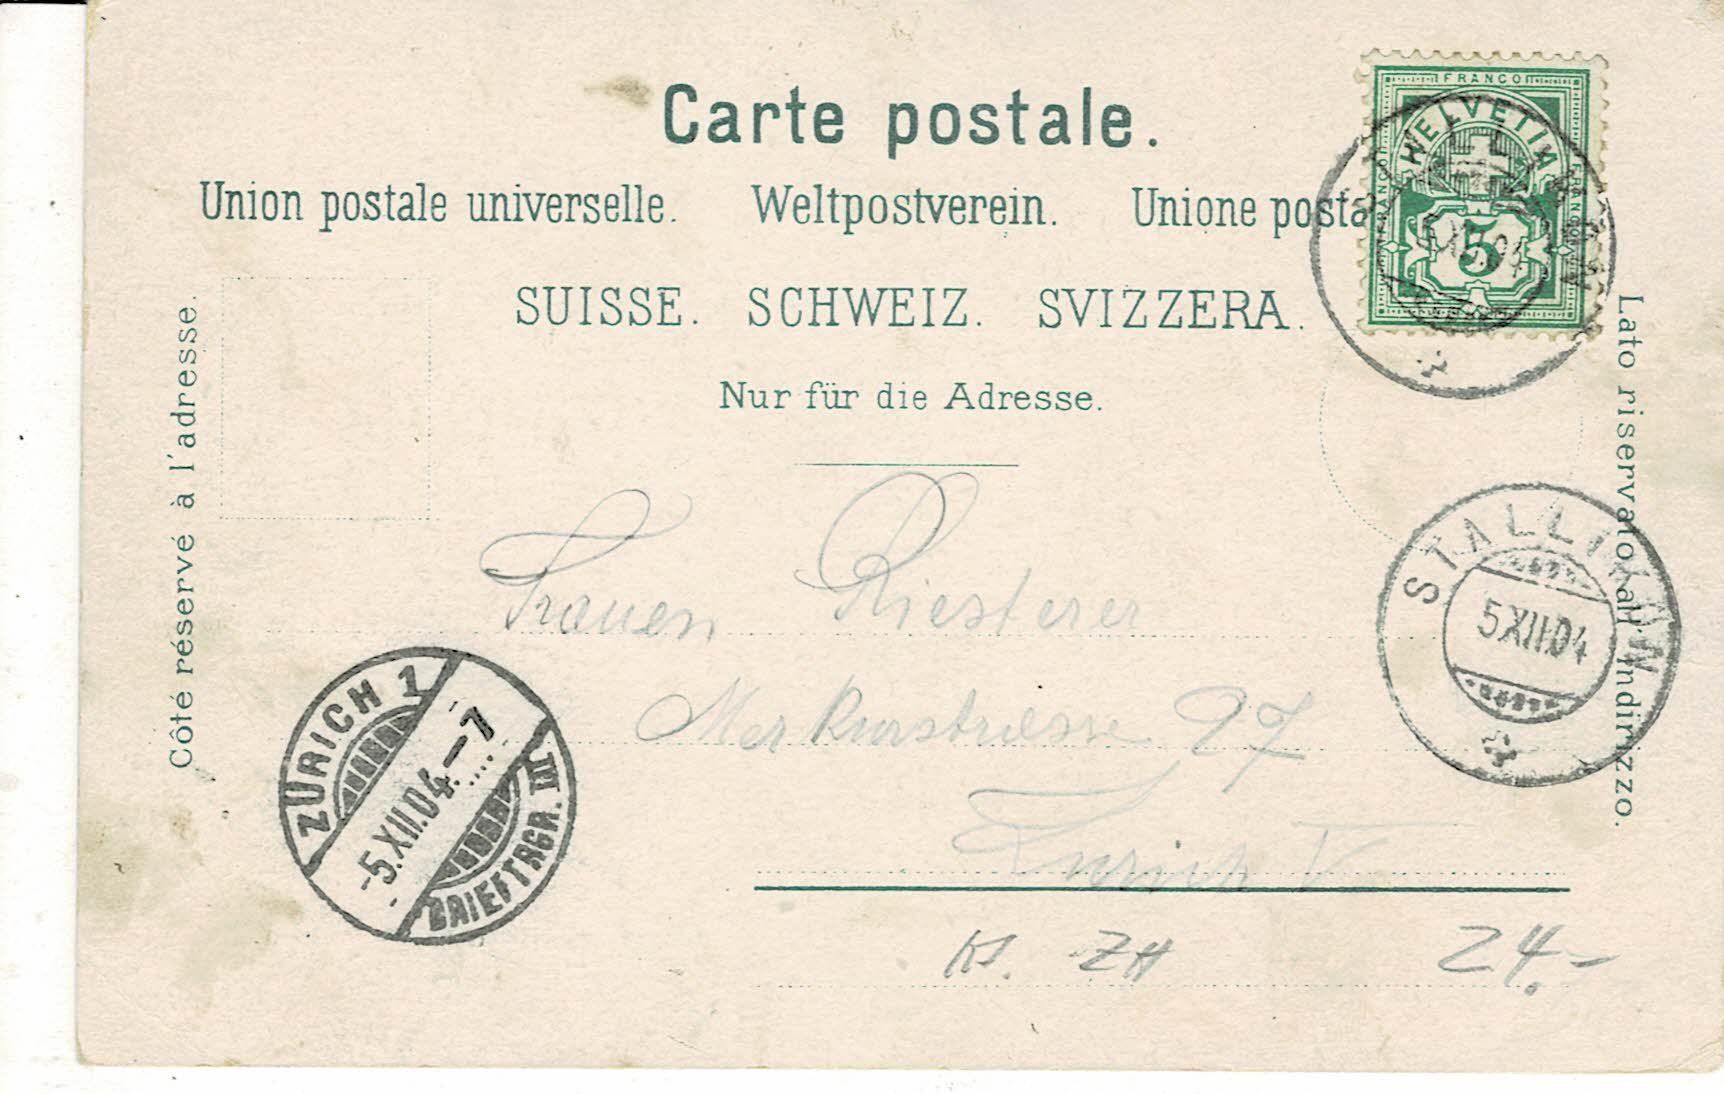 Carte postale.
Union postale universelle. Weltpostverein. Unione posta
SUISSE. SCHWEIZ. SVIZZERA.
Nur für die Adresse.
Côté réservé à l'adresse.
Lato riservato all' indirizzo.
FRANCO
HELVETIA
FRANCO
FRANCO
5
XII.04
STALLIKON
5.XII.04
ZÜRICH 1
-5.XII.04.-7
BRIEFTRGR. III
Frauen Riesterer
Merkurstrasse 27
Zürich V
Kt. ZH 24.-